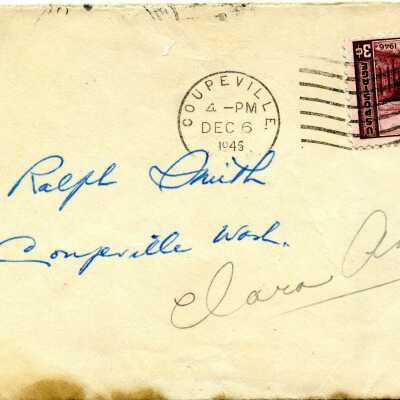 COUPEVILLE.
4 -PM
DEC 6
1946
3¢ 1946
U.S. POSTAGE
Ralph Smith
Coupeville Wash.
Clara